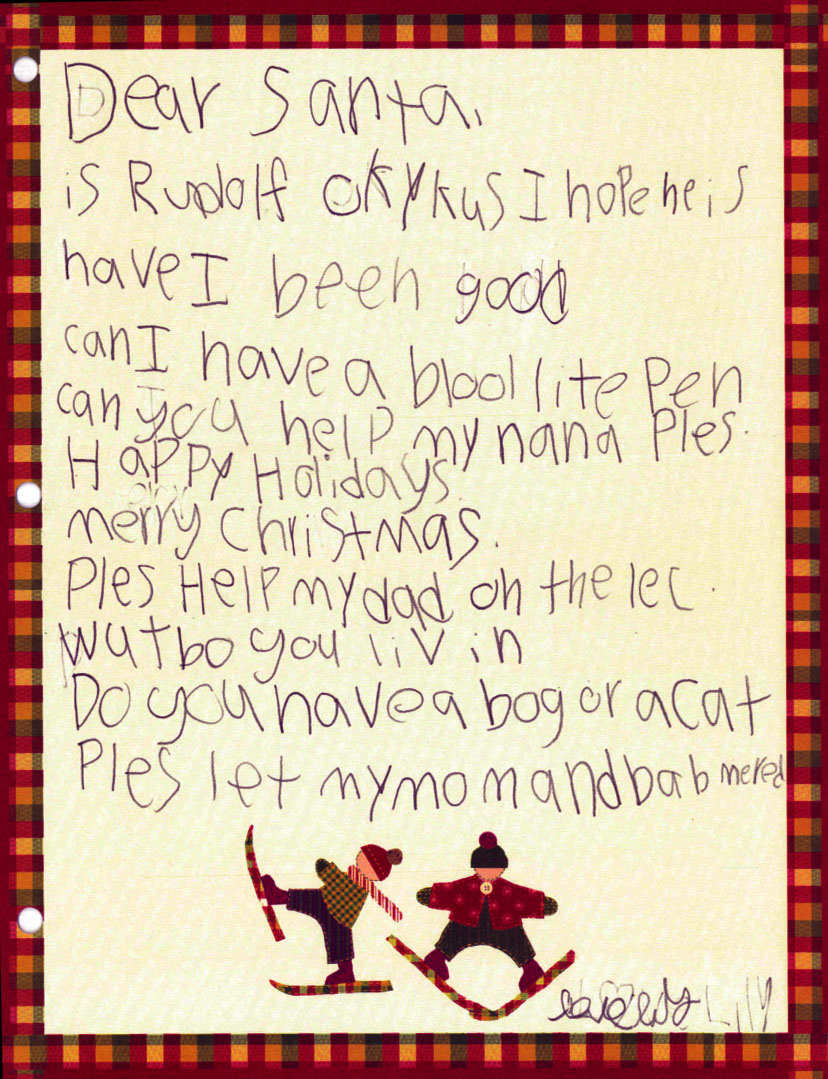 Dear Santa,
is Rudolf oky kus I hope he is
have I been good
can I have a blool lite Pen
can you help my nana Ples.
Happy Holidays.
merry Christmas.
Ples Help my dad on the lec.
wut bo you liv in
Do you have a bog or a cat
Ples let my mom and bab mered
Lilly